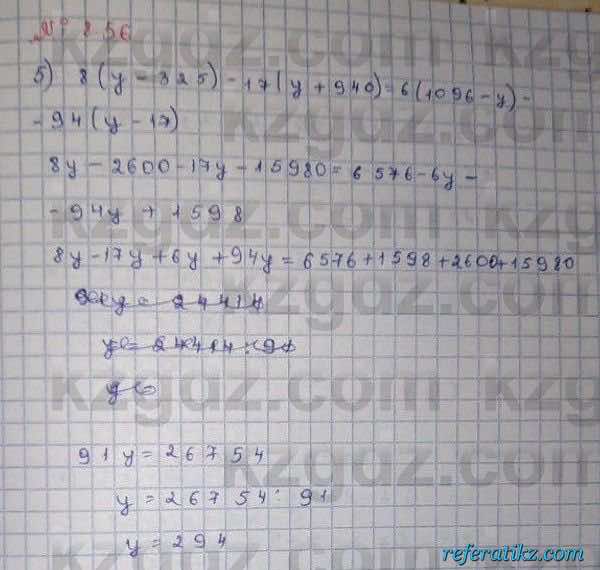 № 856
5) 8(y - 325) - 17(y + 940) = 6(1096 - y) -
- 94(y - 17)
8y - 2600 - 17y - 15980 = 6576 - 6y -
- 94y + 1598
8y - 17y + 6y + 94y = 6576 + 1598 + 2600 + 15980
91y = 26754
y = 26754 : 91
y = 294
kzgdz.com
referatikz.com